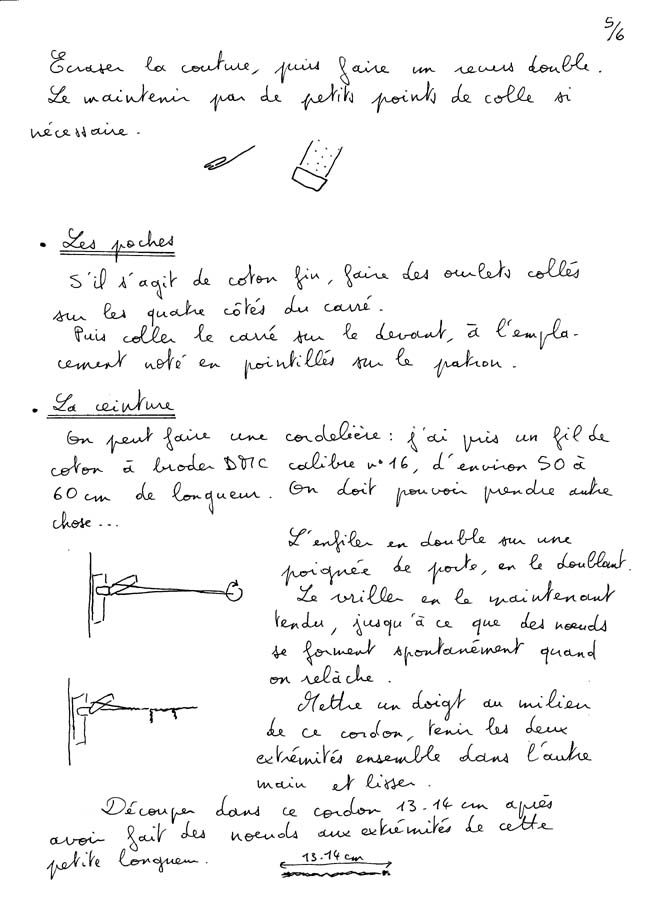 5/6
Ecraser la couture, puis faire un revers double.
Le maintenir par de petits points de colle si
nécessaire.
• Les poches
S'il s'agit de coton fin, faire des ourlets collés
sur les quatre côtés du carré.
Puis coller le carré sur le devant, à l'empla-
cement noté en pointillés sur le patron.
• La ceinture
On peut faire une cordelière : j'ai pris un fil de
coton à broder DMC calibre n°16, d'environ 50 à
60 cm de longueur. On doit pouvoir prendre autre
chose...
L'enfiler en double sur une
poignée de porte, en le doublant.
Le vriller en le maintenant
tendu, jusqu'à ce que des nœuds
se forment spontanément quand
on relâche.
Mettre un doigt au milieu
de ce cordon, tenir les deux
extrémités ensemble dans l'autre
main et lisser.
Découper dans ce cordon 13-14 cm après
avoir fait des nœuds aux extrémités de cette
petite longueur.
13-14 cm